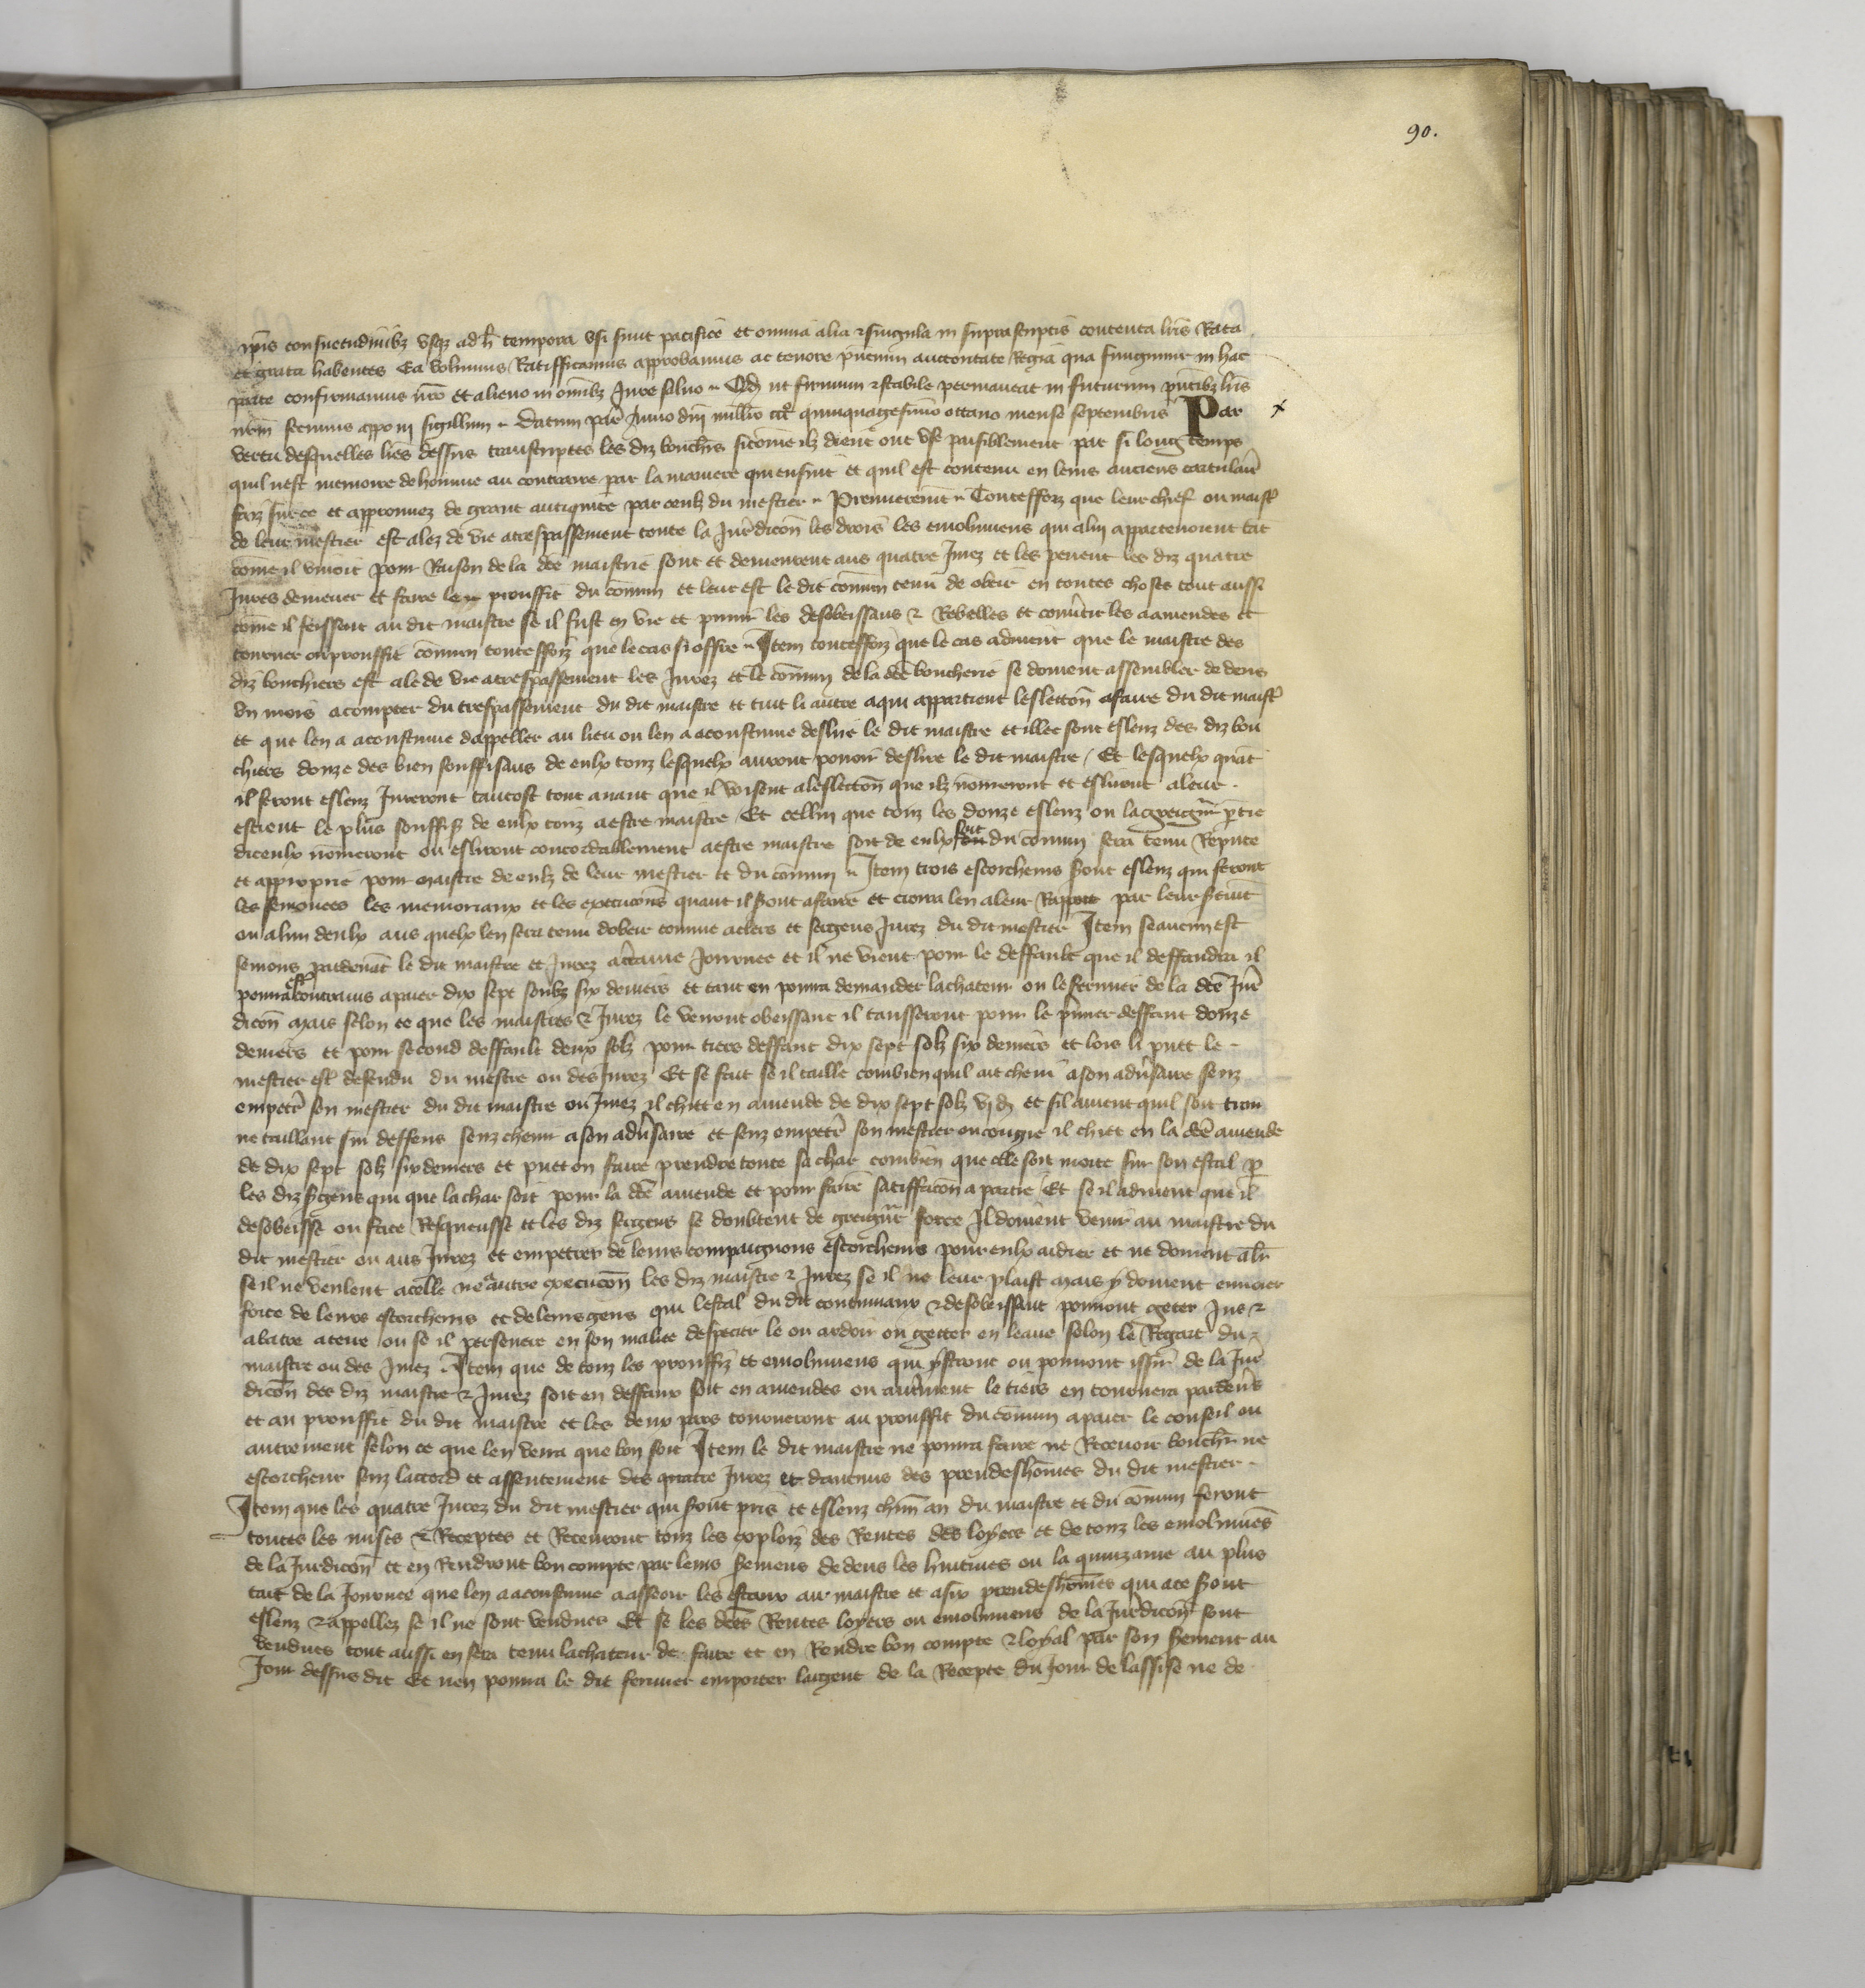 90.
ip̄is consuetudinib3 usq3 ad h̄ tempora usi sunt pacifice et omnia alia ⁊ singula in suprascriptis contenta lr̄is Rata
et grata habentes Ea volumus Ratifficamus approbamus ac tenore p̄ncium auctoritate Regia qua fungimur in hac
parte confirmamus nr̄o et alieno in om̄ib3 Jure saluo Qd̄ ut firmum ⁊ stabile permaneat in futurum pn̄tib3 lr̄is
nr̄m fecimus apponi sigillum Datum par̄ Anno dn̄i mill̄io ccc̊ quinquagesimo octauo mense septembris Par
vertu desquelles lr̄es dessus transcriptes les diz bouchr̄s sicom̄e ilz dient ont use paisiblement par si long temps
quil nest memoire de homme au contraire par la maniere qui ensuit et quil est contenu en leurs anciens cartulair̄
faiz sur ce et approuuez de grant antiquite par ceulz du mestier Premierem̄t Toutesfoiz que leur chief ou maistr̄
de leur mestier est alez de vie atrespassement toute la Jur̄dicōn les drois les emolumens qui alui appartenoient tāt
com̄e il viuoit pour Raison de la dc̄e maistrie sont et demeurent aus quatre Jurez et les peuent les diz quatre
Jures demener et faire leur prouffit du cōmun et leur est le dit cōmun tenu de obeir en toutes choses tout aussi
com̄e il feissent au dit maistre se il fust en vie et punir les desobeissans ⁊ Rebelles et conu̾tir les aamendes et
tourner ou prouffit cōmun toutesfoiz que le cas si offre Item toutesfoiz que le cas aduient que le maistre des
diz bouchiers est ale de vie atrespassement les Jurez et le cōmun de la dc̄e boucherie se doiuent assembler de dens
un mois acompter du trespassement du dit maistre et tuit li autre aqui appartient leslectōn afaire du dit maistr̄
et que len a acoustume dappeller au lieu ou len a acoustume deslire le dit maistre et illec sont esleuz des diz bou
chiers douze des bien souffisans de eulx touz lesquelx auront pouoir deslire le dit maistre Et lesquelx quāt
il seront esleuz Jureront tantost tout auant que il voisent aleslectōn que ilz nōmeront et esliront aleur
escient le plus souffis̄ de eulx touz aestre maistre Et cellui que touz les douze esleuz ou la greign̄r p̄tie
diceulx nōmeront ou esliront concordablement aestre maistre soit de eulx soit du cōmun sera tenu Repute
et approprie pour maistre de eulz de leur mestier et du cōmun Item trois escorcheurs s̾ont esleuz qui feront
les semonces les memoriaux et les execucōns quant il s̾ont afaire et croira len aleur Rapport par leur s̾ement
ou alun deulx aus quelx len sera tenu dobeir comme aclers et sergens Jurez du dit mestier Item se aucun est
semons pardeuāt le dit maistre et Jurez acertaine Journee et il ne vient pour le deffault que il deffaudra il
pourra estr̄ contrains apaier dix sept soulz six deniers et tant en pourra demander lachateur ou le fermier de la dc̄e Jur̄
dicōn Mais selon ce que les maistres ⁊ Jurez le verront obeissant il tausseront pour le p̄mier deffaut douze
deniers et pour second deffault deux solz pour tiers deffaut dix sept solz six deniers et lors li puet le
mestier estr̄ defendu du mestre ou des Jurez Et se fait se il taille combien quil ait cheui ason adu̾saire senz
empetr̄ son mestier du dit maistre ou Jurez il chiet en amende de dix sept solz vj d̄ et sil auient quil soit trou
ue taillant sur deffens senz cheuir ason adu̾saire et senz empetr̄ son mestier ou congie il chiet en la dc̄e amende
de dix sept solz six deniers et puet on faire prendre toute sa char combien que elle soit morte sur son estal p̄
les diz s̾gens qui que la char soit pour la dc̄e amende et pour faire satiffacōn a partie Et se il aduient que il
desobeisse ou face Resqueusse et les diz sergens se doubtent de greign̄r force Il doiuent venir au maistre du
dit mestier ou aus Jurez et empetrer de leurs compaignons escorcheurs pour eulx aidier et ne doiuent al̄r
se il ne veulent acelle ne autre execucōn les diz maistre ⁊ Jurez se il ne leur plaist Mais y doiuent enuoier
force de leurs escorcheurs et de leurs gens qui lestal du dit contumaux ⁊ desobeissant pourront geter Jus ⁊
abatre aterre ou se il perseuere en son malice despecier le ou ardoir ou getter en leaue selon le Regart du
maistre ou des Jurez Item que de touz les prouffiz et emolumens qui ystront ou pourront issir de la Jur̄
dicōn des diz maistre ⁊ Jurez soit en deffaux soit en amendes ou aut̄ment le tiers en tournera pardeu̾s
et au prouffit du dit maistre et les deux pars tourneront au prouffit du cōmun apaier le conseil ou
autrement selon ce que len verra que bon soit Item le dit maistre ne pourra faire ne Receuoir bouch̄r ne
escorcheur senz laccord et assentement des quatre Jurez et daucuns des preudeshōmes du dit mestier
Item que les quatre Jurez du dit mestier qui s̾ont pris et esleuz chūn an du maistre et du cōmun feront
toutes les mises ⁊ Receptes et Receuront touz les exploiz des Rentes des loyers et de touz les emolumēs
de la Jurdicōn et en Rendront bon compte par leurs s̾emens dedens les huitiues ou la quinzaine au plus
tart de la Journee que len a acoustume aasseoir les estaux au maistre et asix preudeshōmes qui ace s̾ont
esleuz ⁊ appellez se il ne sont vendues Et se les dc̄es Rentes loyers ou emolumens de la Jur̄dicōn sont
vendues tout aussi en sera tenu lachateur de faire et en Rendre bon compte ⁊ loyal par son s̾ement au
Jour dessus dit Et nen pourra le dit fermier emporter largent de la Recepte du Jour de lassise ne de